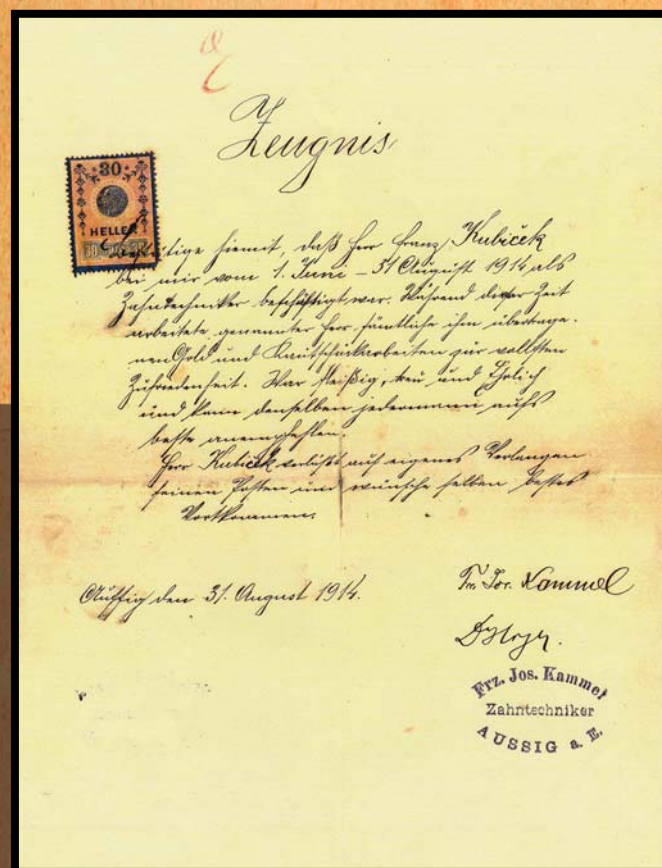 Zeugnis
30
HELLER
Bestätige hiemit, daß Herr Franz Kubiček
bei mir vom 1. Juni – 31 August 1914 als
Zahntechniker beschäftigt war. Während dieser Zeit
arbeitete genannter Herr sämtliche ihm übertrage-
nen Gold und Kautschuckarbeiten zur vollsten
Zufriedenheit. War fleißig, treu und Ehrlich
und kann denselben jedermann aufs
beste anempfehlen.
Herr Kubiček verläßt auf eigenes Verlangen
seinen Posten und wünsche selben bestes
Vortkommen.
Aussig den 31. August 1914.
Frz. Jos. Kammel
Frz. Jos. Kammel
Zahntechniker
AUSSIG a. E.